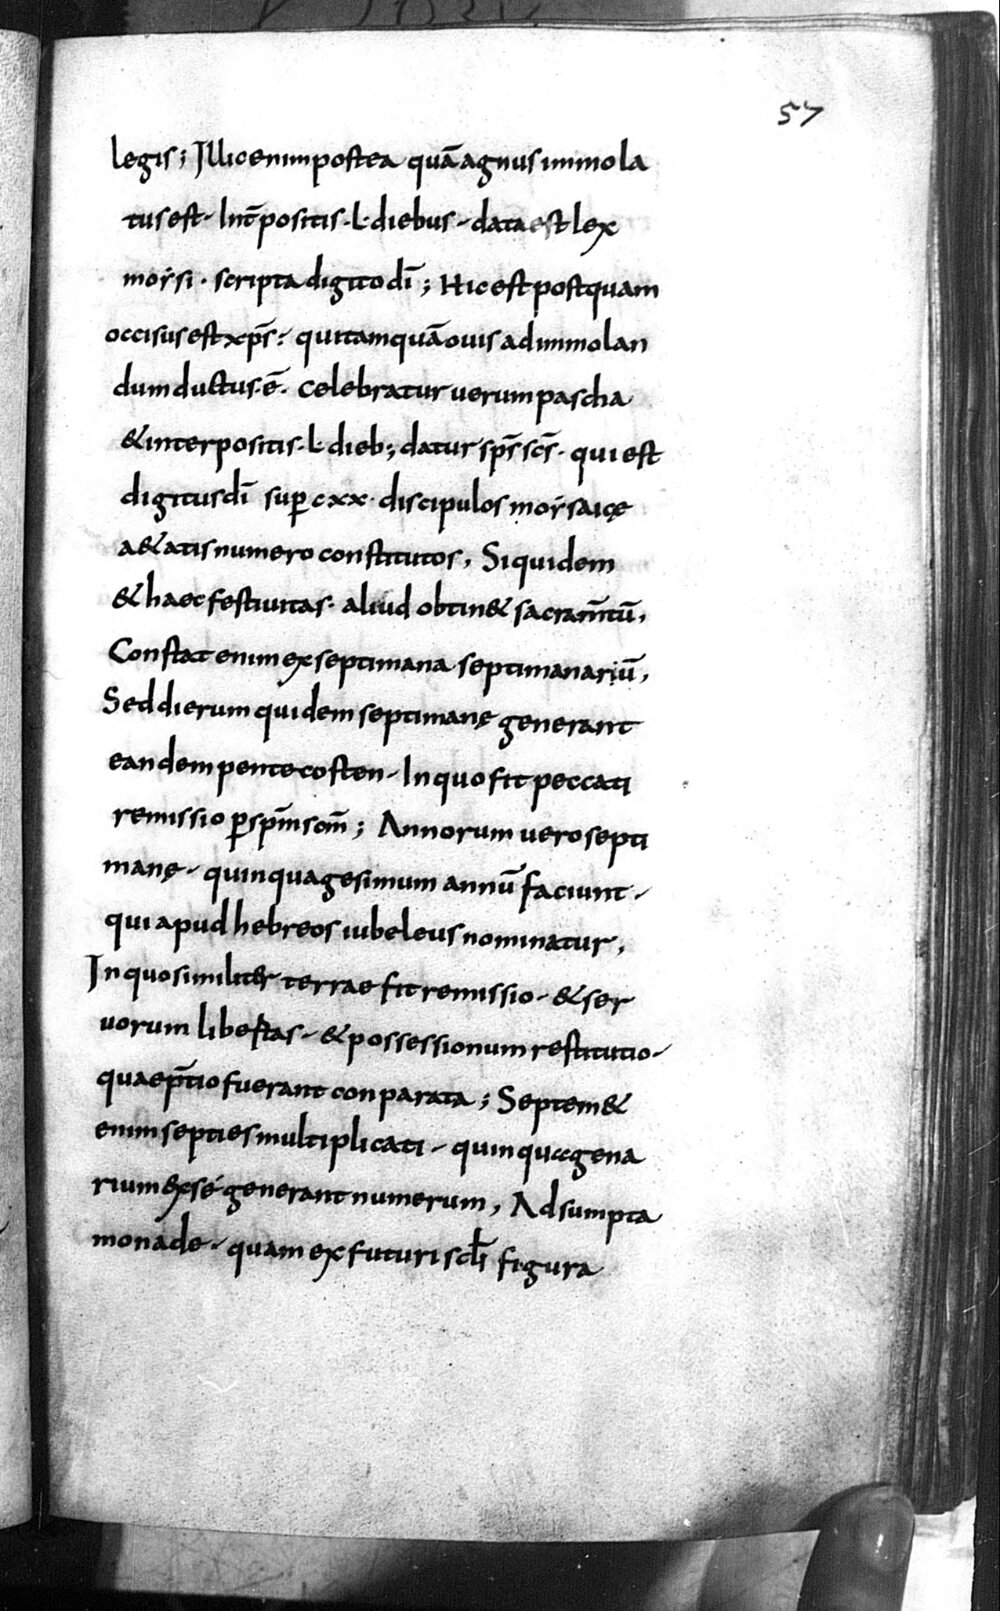 57
legis; Illic enim postea quā agnus immola
tus est. Int̄positis .L. diebus. data est lex
moẏsi. scripta digito dī; Hic est postquam
occisus est xp̄s: qui tamquā ouis ad immolan
dum ductus .ē. celebratur uerum pascha
& interpositis .L. dieb; datur sp̄s sc̄s. qui est
digitus dī sup̲ cxx. discipulos moẏsaicę
a&atis numero constitutos, Siquidem
& haec festiuitas. aliud obtin& sacram̄tū,
Constat enim ex septimana septimanariū,
Sed dierum quidem septimanę generant
eandem pentecosten. In quo fit peccati
remissio ꝑ sp̄m sc̄m; Annorum uero septi
manę. quinquagesimum annū faciunt.
qui apud hebreos iubeleus nominatur,
In quo similiter terrae fit remissio. & ser
uorum libertas. & possessionum restitutio.
quae p̄tio fuerant conparata; Septem &
enim septies multiplicati. quinquagena
rium ex sé generant numerum, Adsumpta
monade. quam ex futuri scl̄i figura